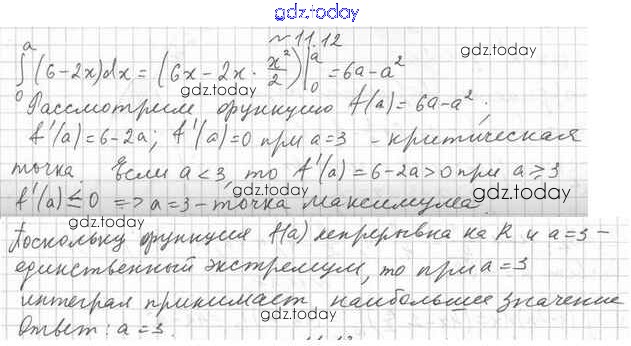 gdz.today
№ 11.12
∫₀ᵃ (6-2x)dx = (6x-2x·x²/2)|₀ᵃ = 6a-a²
gdz.today
gdz.today
Рассмотрим функцию f(a)=6a-a².
f'(a)=6-2a; f'(a)=0 при a=3 - критическая
точка. Если a<3, то f'(a)=6-2a>0 при a⩾3
f'(a)≤0 => a=3-точка максимума.
gdz.today
gdz.today
Поскольку функция f(a) непрерывна на R и a=3-
единственный экстремум, то при a=3
интеграл принимает наибольшее значение
Ответ: a=3.
gdz.today
gdz.today
gdz.today
11.13